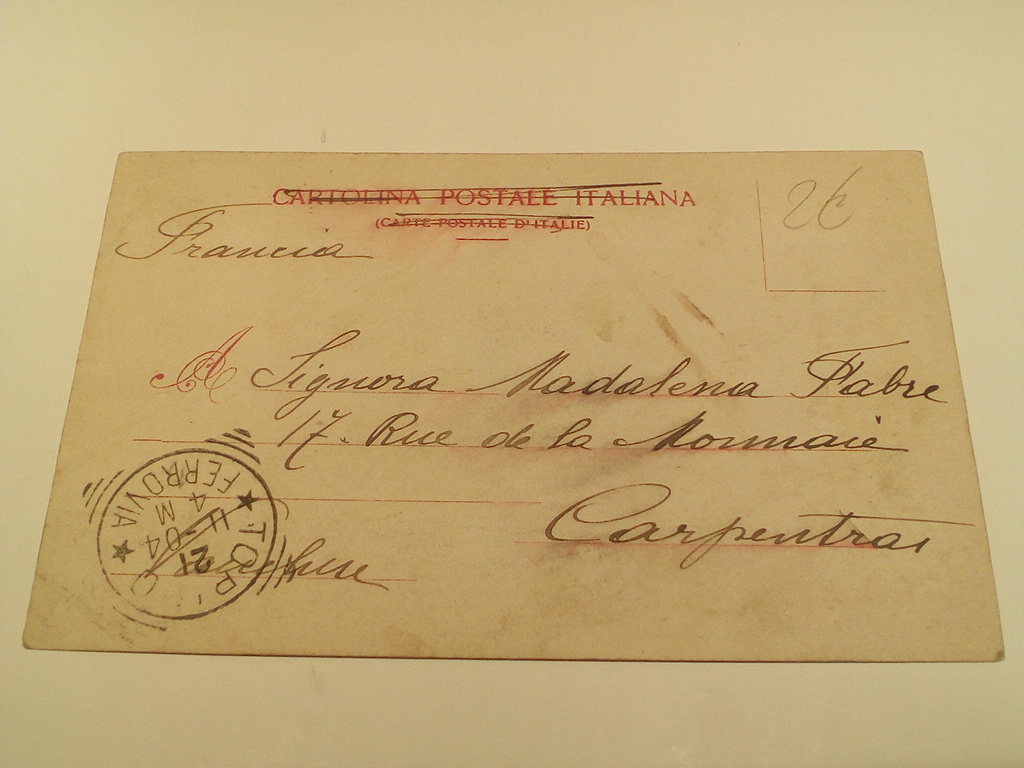 CARTOLINA POSTALE ITALIANA
(CARTE POSTALE D'ITALIE)
2€
Francia
A Signora Madalena Fabre
17. Rue de la Monnaie
Carpentras
Vaucluse
TORINO
FERROVIA
21
11-04
4 M